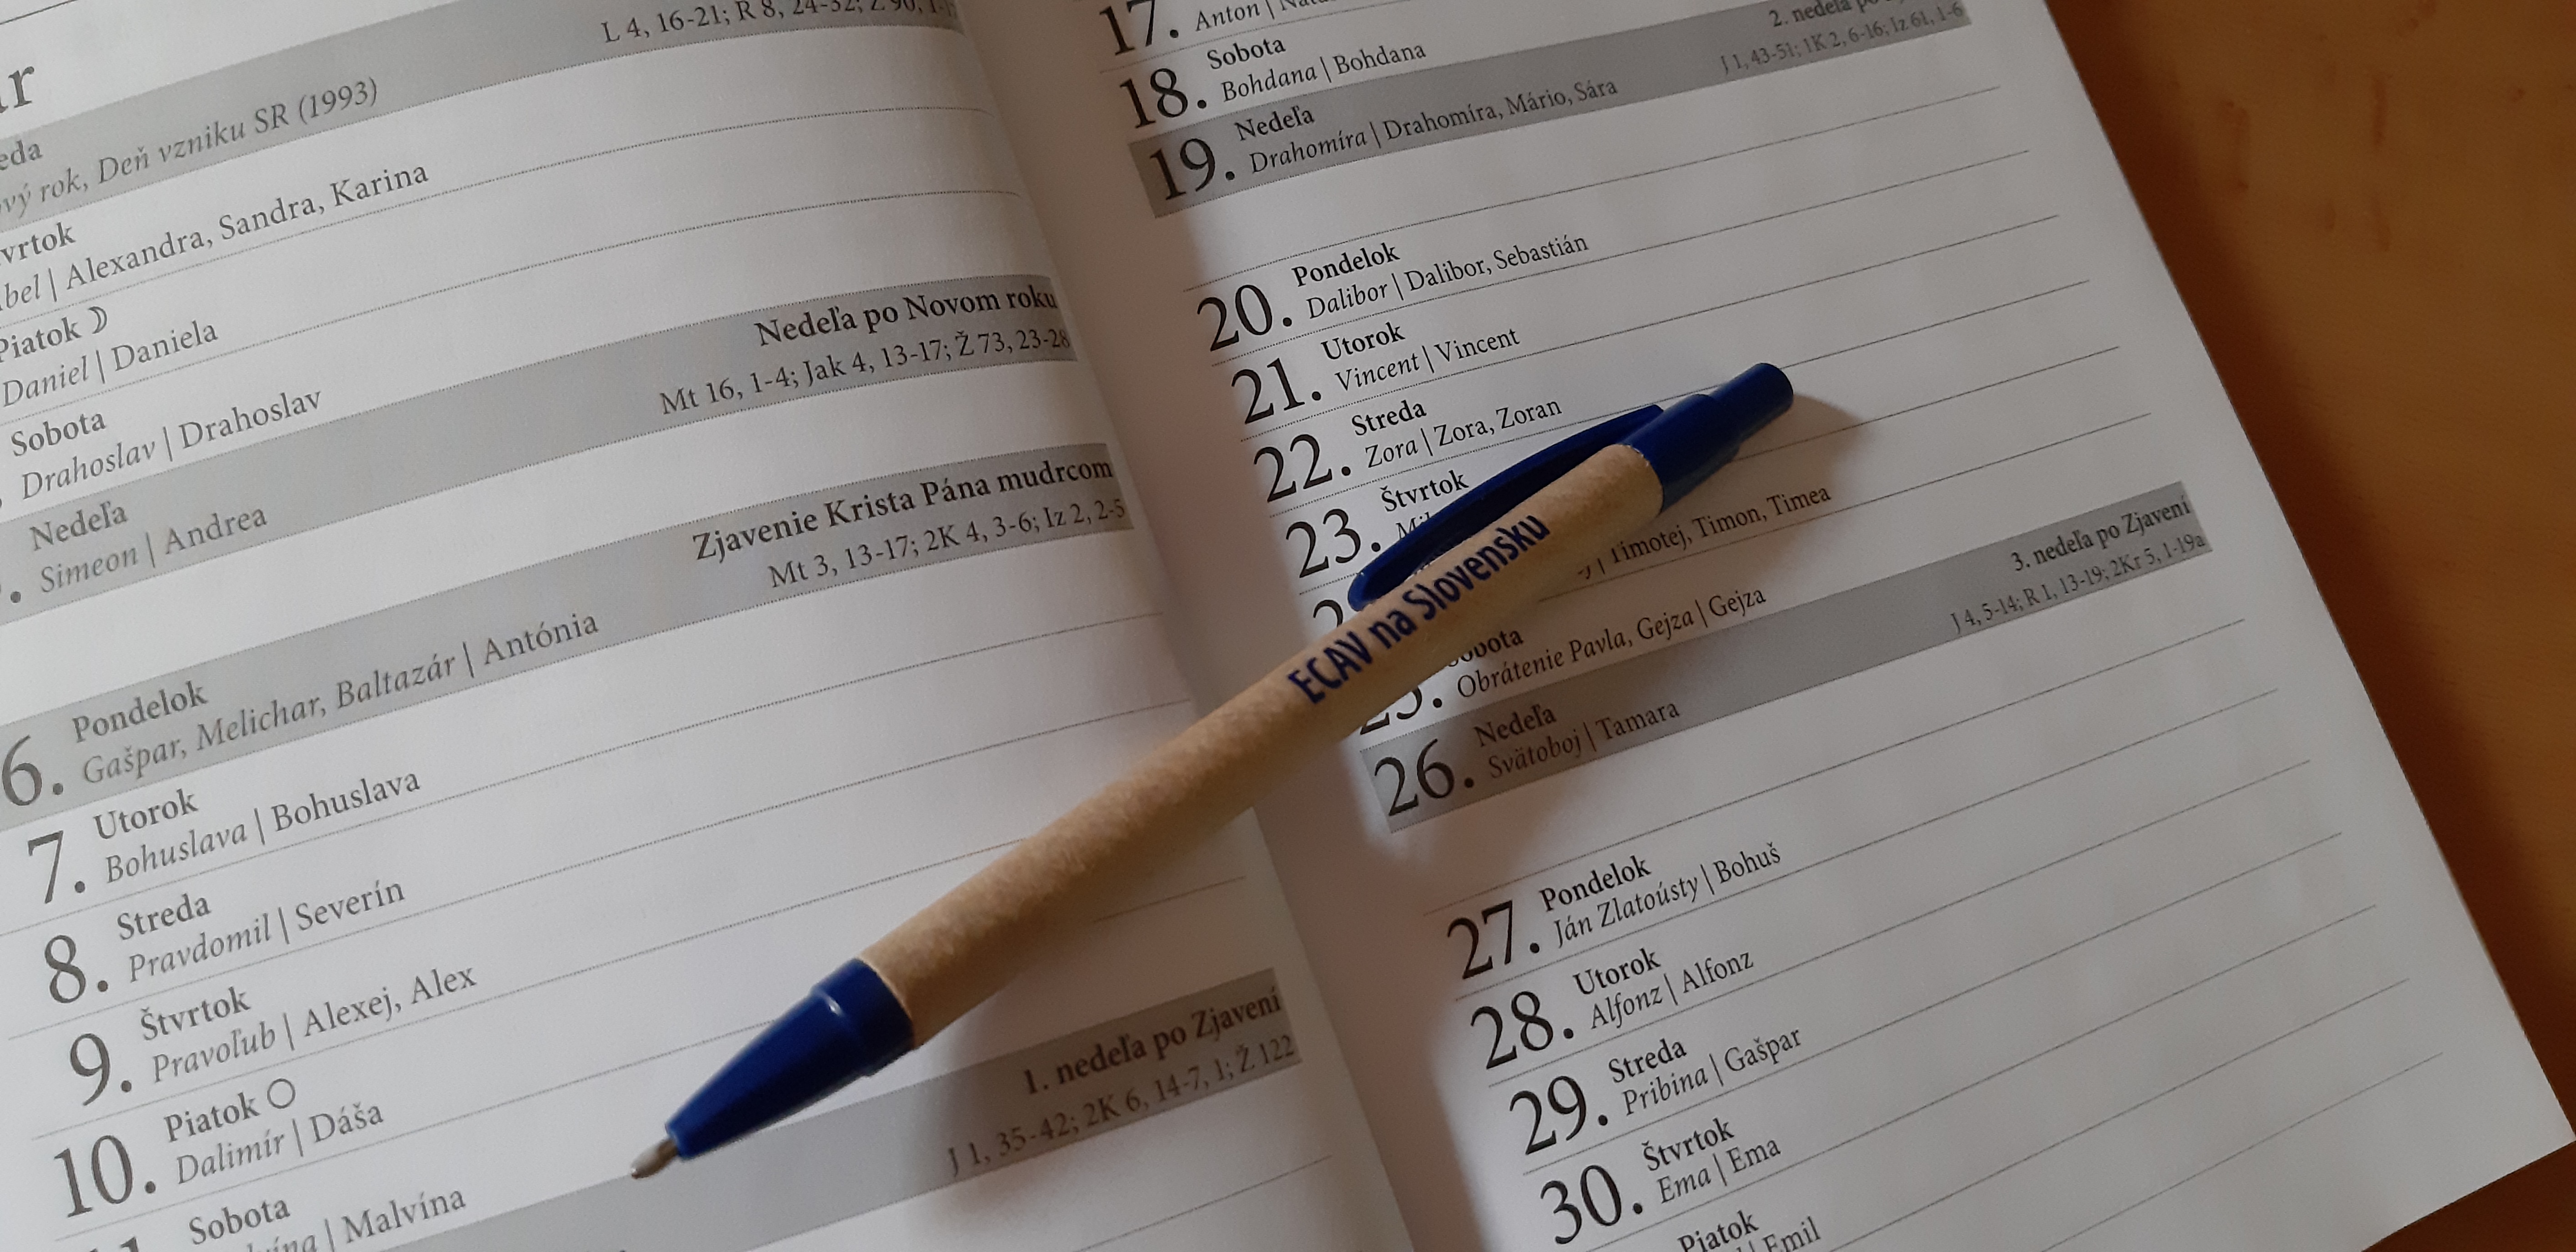 L 4, 16-21; R 8, 24-32; Ž 90,
rok, Deň vzniku SR (1993)
Alexandra, Sandra, Karina
Piatok ☽
Daniel | Daniela
Sobota
Drahoslav | Drahoslav
Nedeľa po Novom roku
Nedeľa
Mt 16, 1-4; Jak 4, 13-17; Ž 73, 23-28
Simeon | Andrea
Zjavenie Krista Pána mudrcom
Mt 3, 13-17; 2K 4, 3-6; Iz 2, 2-5
6. Pondelok
Gašpar, Melichar, Baltazár | Antónia
7. Utorok
Bohuslava | Bohuslava
8. Streda
Pravdomil | Severín
9. Štvrtok
Pravoľub | Alexej, Alex
10. Piatok ○
Dalimír | Dáša
Sobota
| Malvína
1. nedeľa po Zjavení
J 1, 35-42; 2K 6, 14-7, 1; Ž 122
17.
Anton |
18. Sobota
Bohdana | Bohdana
2. nedeľa
19. Nedeľa
J 1, 43-51; 1K 2, 6-16; Iz 61, 1-6
Drahomíra | Drahomíra, Mário, Sára
20. Pondelok
Dalibor | Dalibor, Sebastián
21. Utorok
Vincent | Vincent
22. Streda
Zora | Zora, Zoran
23. Štvrtok
| Timotej, Timon, Timea
25. Sobota
Obrátenie Pavla, Gejza | Gejza
3. nedeľa po Zjavení
26. Nedeľa
J 4, 5-14; R 1, 13-19; 2Kr 5, 1-19a
Svätoboj | Tamara
27. Pondelok
Ján Zlatoústy | Bohuš
28. Utorok
Alfonz | Alfonz
29. Streda
Pribina | Gašpar
30. Štvrtok
Ema | Ema
Piatok
| Emil
ECAV na Slovensku